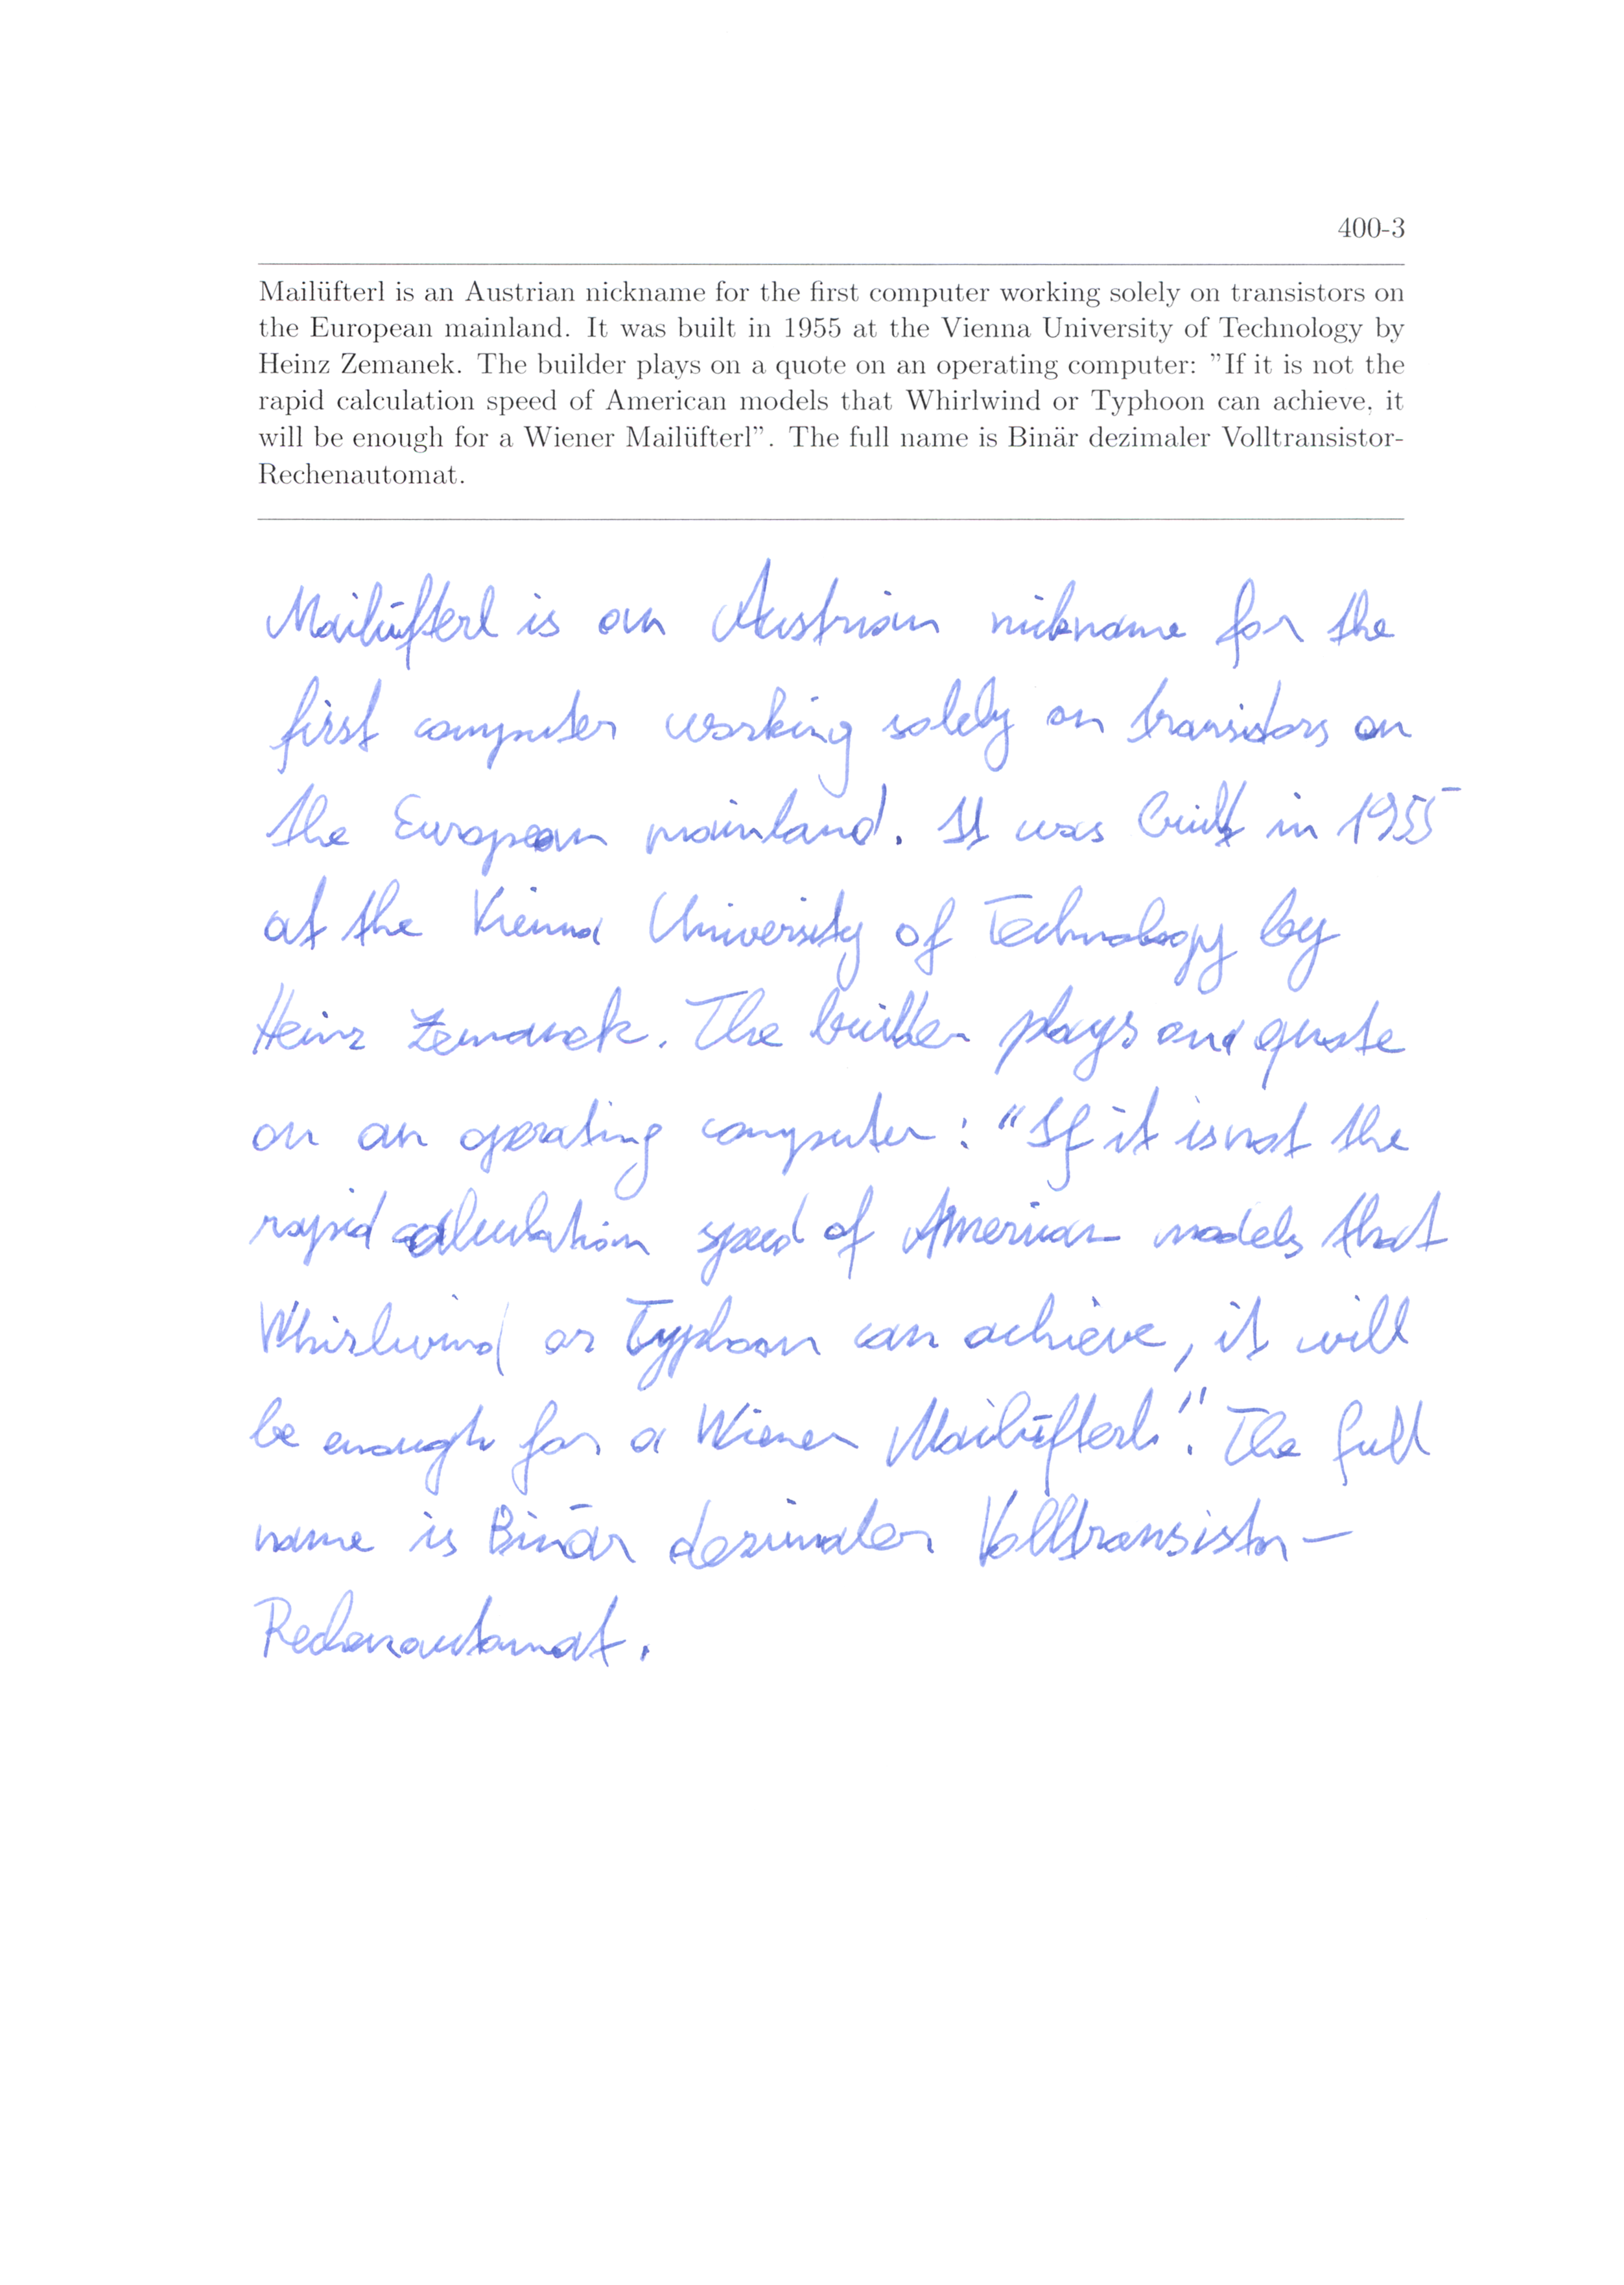 400-3
Mailüfterl is an Austrian nickname for the first computer working solely on transistors on
the European mainland. It was built in 1955 at the Vienna University of Technology by
Heinz Zemanek. The builder plays on a quote on an operating computer: "If it is not the
rapid calculation speed of American models that Whirlwind or Typhoon can achieve, it
will be enough for a Wiener Mailüfterl". The full name is Binär dezimaler Volltransistor-
Rechenautomat.
Mailüfterl is an Austrian nickname for the
first computer working solely on transistors on
the European mainland. It was built in 1955
at the Vienna University of Technology by
Heinz Zemanek. The builder plays on a quote
on an operating computer: "If it is not the
rapid calculation speed of American models that
Whirlwind or Typhoon can achieve, it will
be enough for a Wiener Mailüfterl". The full
name is Binär dezimaler Volltransistor-
Rechenautomat.